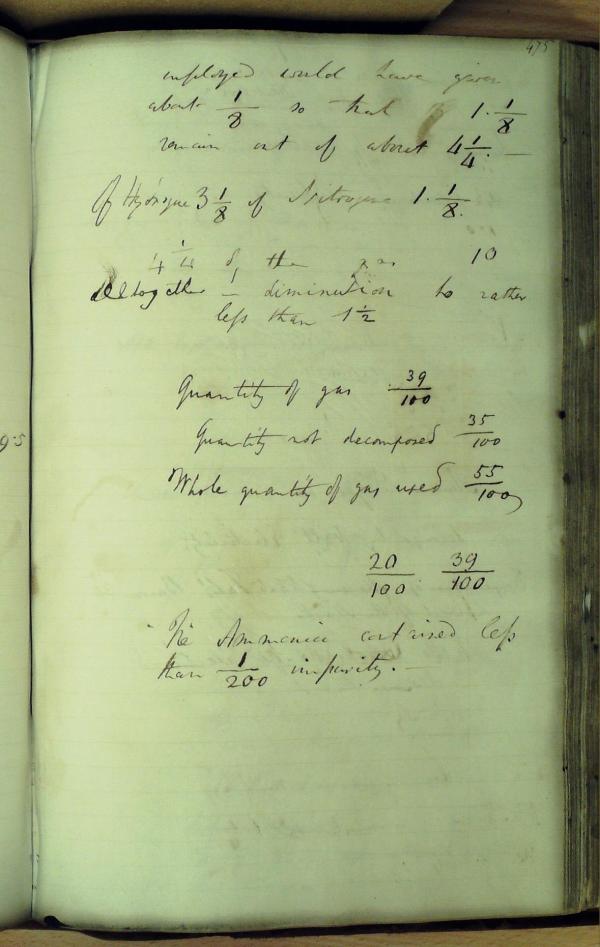 475
employed would have given
about 1/8 so that 1. 1/8
remain out of about 4 1/4. —
Of Hydrogene 3 1/8 of Nitrogene 1. 1/8.
4 1/4 of the gas 10
altogether – diminution to rather
less than 1 1/2
Quantity of gas 39/100
Quantity not decomposed 35/100
Whole quantity of gas used 55/100
20/100 39/100
The Ammonia contained less
than 1/200 impurity. —
9.5